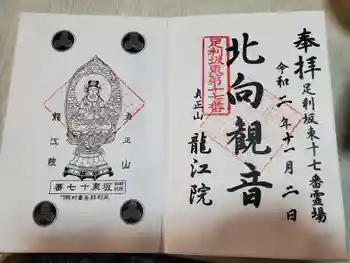 奉拝
足利坂東十七番霊場
令和二年十一月二日
足利坂東第十七番
北向観音
真正山
龍江院
真正山
龍江院
坂東十七番